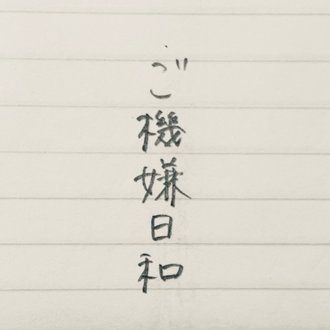 ご機嫌日和